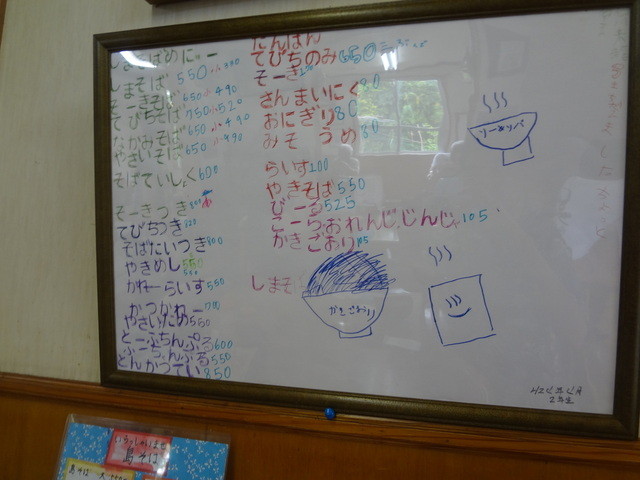 しまそば 550 小 400
そーきそば 650 小 490
てびちそば 750 小 520
なかみそば 650 小 490
やさいそば 650 小 490
そばていしょく 600
そーきつき
てびちつき
そばたいつき 800
やきめし 550
かれーらいす 550
かつかれー 700
やさいため 550
とーふちんぷる 600
ふーちんぷる 550
とんかつてい 850
にんぱん
てびちのみ 650
そーき
さんまいにく
おにぎり 80
みそ うめ 80
らいす 100
やきそば 550
びーる 525
こーら、おれんじ、じんじゃ 105
かきごおり
しまそ
かきごおり
2年生
いらっしゃいませ
島そば
島そば 大